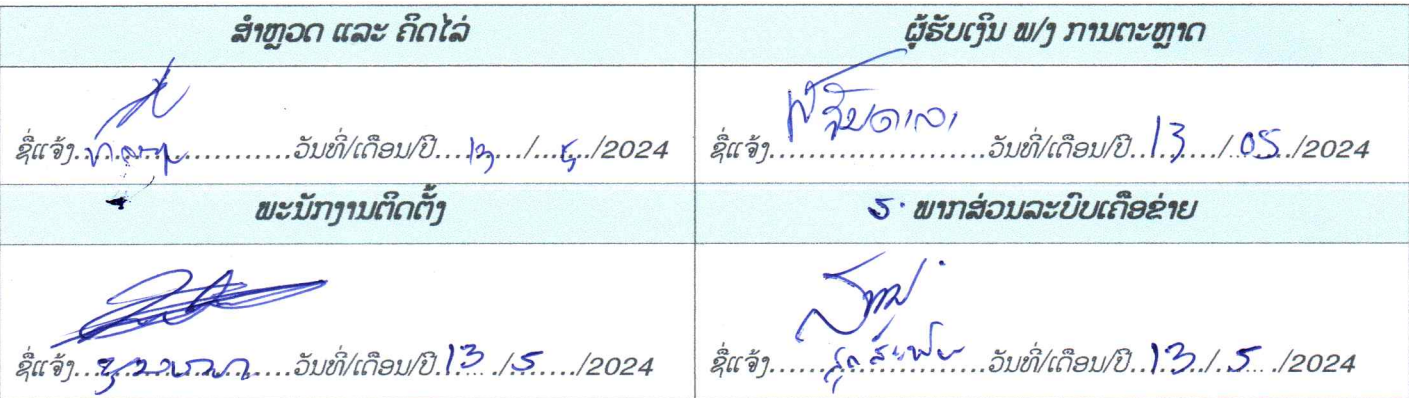 ສຳຫຼວດ ແລະ ຄິດໄລ່
ຜູ້ຮັບເງິນ ພ/ງ ການຕະຫຼາດ
ຊື່ແຈ້ງ......................ວັນທີ່/ເດືອນ/ປີ....13..../...5../2024
ຊື່ແຈ້ງ......................ວັນທີ່/ເດືອນ/ປີ..13..../.05../2024
ພະນັກງານຕິດຕັ້ງ
ຮ. ພາກສ່ວນລະບົບເຄືອຂ່າຍ
ຊື່ແຈ້ງ......................ວັນທີ່/ເດືອນ/ປີ.13../.5..../2024
ຊື່ແຈ້ງ......................ວັນທີ່/ເດືອນ/ປີ..13../.5.../2024